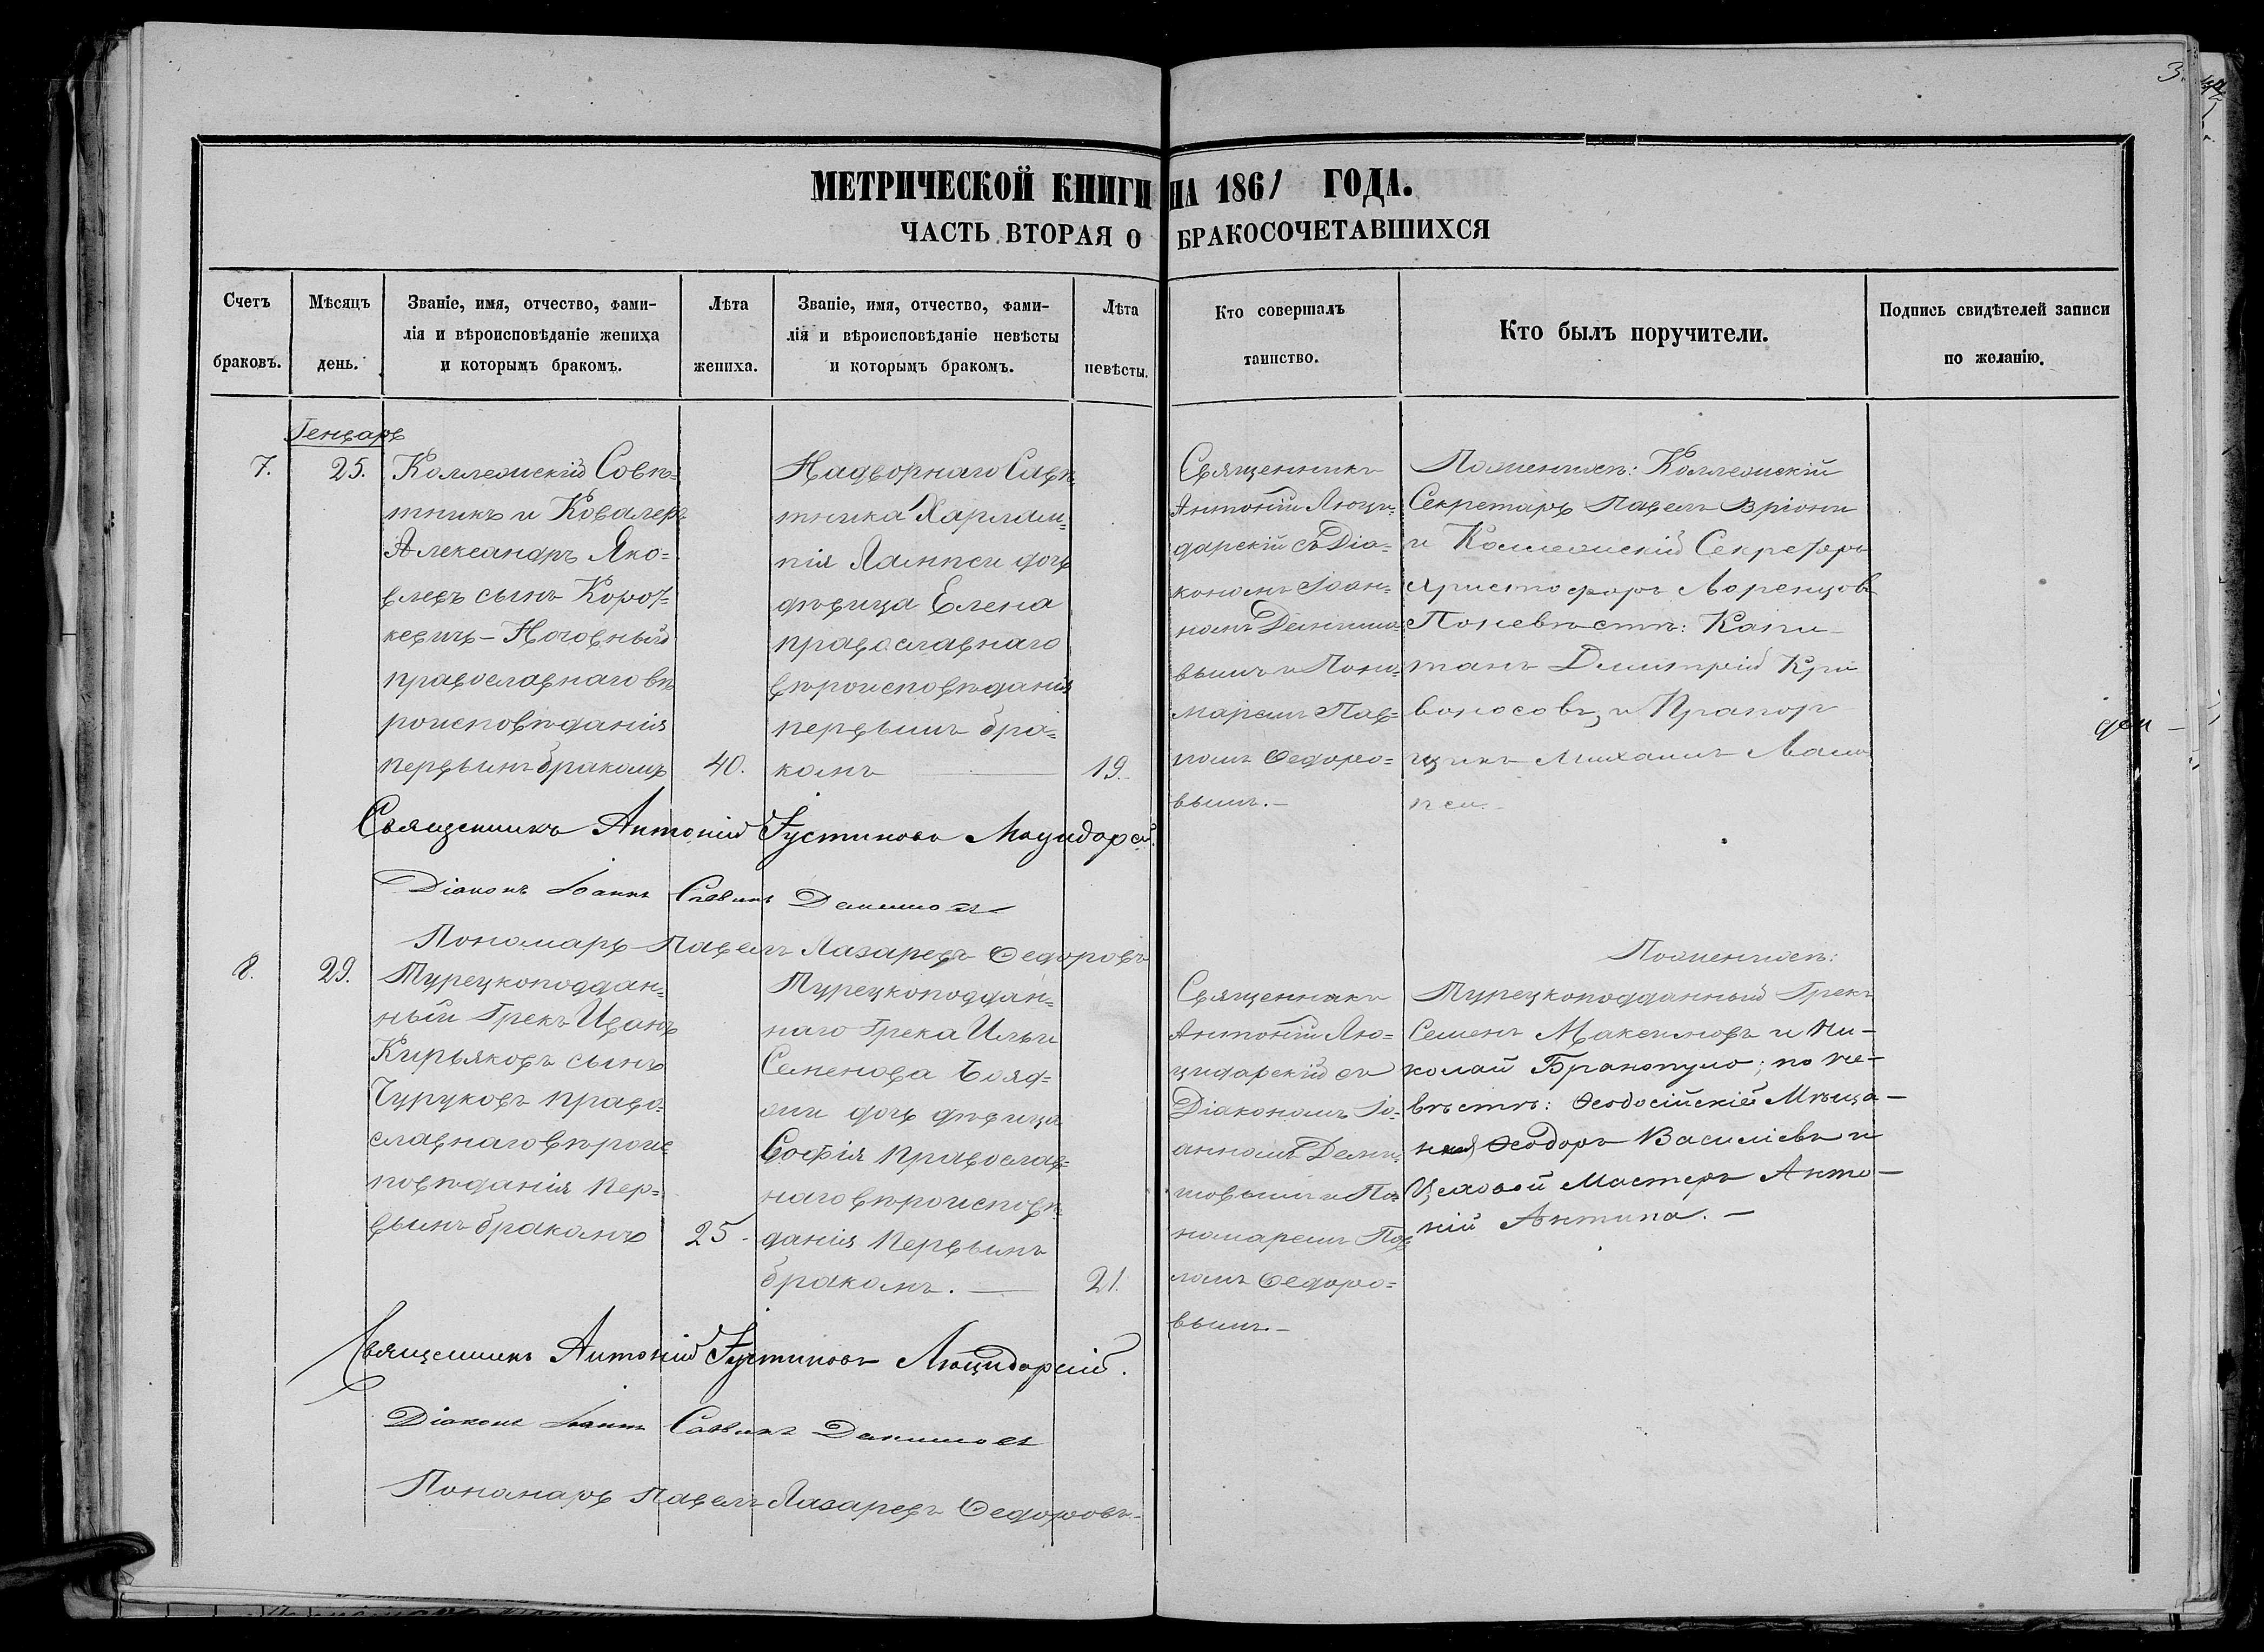 3.
МЕТРИЧЕСКОЙ КНИГИ НА 1861 ГОДА.
ЧАСТЬ ВТОРАЯ О БРАКОСОЧЕТАВШИХСЯ
Счетъ браковъ.
Мѣсяцъ день.
Званіе, имя, отчество, фами-
лія и вѣроисповѣданіе жениха
и которымъ бракомъ.
Лѣта
жениха.
Званіе, имя, отчество, фами-
лія и вѣроисповѣданіе невѣсты
и которымъ бракомъ.
Лѣта
невѣсты.
Кто совершалъ
таинство.
Кто былъ поручители.
Подпись свидѣтелей записи
по желанію.
Генварь
7.
25.
Коллежскій Совѣ-
тникъ и Кавалеръ
Александръ Яко-
влевъ сынъ Корот-
кевичъ-Ночовный
православнаго вѣ
роисповѣданія
первымъ бракомъ
40.
Надворнаго Совѣ
тника Харлам-
пія Лампси дочь
дѣвица Елена
православнаго
вѣроисповѣданія
первымъ бра-
комъ
19.
Священникъ
Антоній Люци-
дарскій съ Діа-
кономъ Іоан-
номъ Данило-
вымъ и Поно-
маремъ Пав-
ломъ Ѳедоро-
вымъ.-
По женихѣ: Коллежскій
Секретарь Павелъ Вріони
и Коллежскій Секретарь
Христофоръ Лоренцовъ
По невѣстѣ: Капи-
танъ Дмитрій Кри
воносовъ, и Прапор
щикъ Михаилъ Лам
пси.-
Священникъ Антоній Густиновъ Люцидарскій
Діаконъ Іоаннъ Саввинъ Даниловъ
Пономарь Павелъ Лазаревъ Ѳедоровъ
8.
29.
Турецкоподдан-
ный Грекъ Иванъ
Кирьяковъ сынъ
Чуруковъ право-
славнаго вѣроис
повѣданія пер-
вымъ бракомъ
25.
Турецкоподдан-
наго Грека Ильи
Семенова
дочь дѣвица
Софія православ-
наго вѣроисповѣ
данія первымъ
бракомъ.
21.
Священникъ
Антоній Лю-
цидарскій съ
Діакономъ Іо-
анномъ Дани-
ловымъ и По-
номаремъ Пав
ломъ Ѳедоро-
вымъ.-
По женихѣ:
Турецкоподданный Грекъ
Семенъ Максимовъ и Ни-
колай Бранопуло; по не-
вѣстѣ: Ѳеодосійскій Мѣща-
нинъ Ѳеодоръ Василіевъ и
Цеховой Мастеръ Анто-
ній Антипа.-
Священникъ Антоній Густиновъ Люцидарскій.
Діаконъ Іоаннъ Саввинъ Даниловъ
Пономарь Павелъ Лазаревъ Ѳедоровъ.